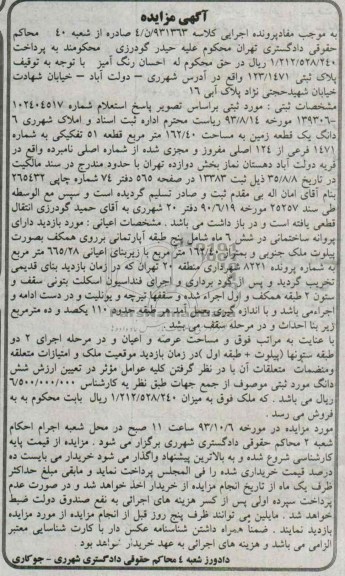 آگهی مزایده
به موجب مفادپرونده اجرایی کلاسه ۹۳۱۳۶۳/۴/ن صادره از شعبه ۴۰ محاکم
حقوقی دادگستری تهران محکوم علیه حیدر گودرزی محکومند به پرداخت
۱/۲۱۲/۵۲۸/۲۴۰ ریال در حق محکوم له احسان رنگ آمیز با توجه به توقیف
پلاک ثبتی ۱۲۳/۱۴۷۱ واقع در آدرس شهرری – دولت آباد – خیابان شهادت
خیابان شهیدحجتی نژاد پلاک آبی ۱۶
مشخصات ثبتی : مورد ثبتی براساس تصویر پاسخ استعلام شماره ۱۰۲۴۰۴۵۱۷
–۱۳۹۳۰۶ مورخه ۹۳/۸/۱۴ ریاست محترم اداره ثبت اسناد و املاک شهرری ۶
دانگ یک قطعه زمین به مساحت ۱۶۲/۴۰ متر مربع قطعه ۵۱ تفکیکی به شماره
۱۴۷۱ فرعی از ۱۲۴ اصلی مفروز و مجزی شده از شماره اصلی نامبرده واقع در
قریه دولت آباد دهستان نماز بخش دوازده تهران با حدود مندرج در سند مالکیت
در تاریخ ۳۵/۸/۸ ذیل ثبت ۱۳۳۸۳ در صفحه ۵۶۵ دفتر ۷۴ شماره چاپی ۲۶۵۴۳۲
بنام آقای امان اله بی مقدم ثبت و صادر تسلیم گردیده است و سپس مع الوسطه
طی سند ۲۵۲۵۷ مورخه ۹۰/۶/۱۹ دفتر ۲۰ شهرری به آقای حمید گودرزی انتقال
قطعی یافته است و در باز داشت می باشد . مشخصات اعیانی : مورد بازدید دارای
پروانه ساختمانی در شش ۶ ماه شامل پنج طبقه آپارتمانی برروی همکف بصورت
پیلوت ملک جنوبی و بمتراژ ۱۶۲/۴۰ متر مربع با زیربنای اعیانی ۶۶۵/۲۸ متر مربع
به شماره پرونده ۸۲۲۱ شهرداری منطقه ۲۰ تهران که در زمان بازدید بنای قدیمی
تخریب گردید و پس از گود برداری و اجرای فنداسیون اسکلت بتونی سقف و
ستون ۲ طبقه همکف و اول اجراء شده و سقفها تیرچه و یونلیت و در دست ادامه و
اجراءمی باشد و با اندازه گیری بعمل آمد هر طبقه حدود ۱۱۰ یکصد و ده مترمربع
زیر بنا احداث و در مرحله سقف می باشد .
با عنایت به مراتب فوق و مساحت عرصه و اعیان و در مرحله اجرای ۲ دو
طبقه ستونها (پیلوت + طبقه اول )در زمان بازدید موقعیت ملک و امتیازات متعلقه
ومنضمات متعلقات آن با در نظر گرفتن کلیه عوامل مؤثر در تعیین ارزش شش
دانگ مورد ثبتی موصوف از جمع جهات طبق نظر یه کارشناس ۶/۵۰۰/۰۰۰/۰۰۰
ریال می باشد . که ملک فوق به میزان ۱/۲۱۲/۵۲۸/۲۴۰ ریال بابت محکوم به به
فروش می رسد .
مورد مزایده در مورخه ۹۳/۱۰/۶ ساعت ۱۱ صبح در محل شعبه اجرام احکام
شعبه ۲ محاکم حقوقی دادگستری شهرری برگزار می شود . مزایده از قیمت پایه
کارشناسی شروع شده و به بالاترین پیشنهاد واگذار می شود خریدار می بایست ده
درصد قیمت خریداری شده را فی المجلس پرداخت نماید و مابقی مبلغ حداکثر
ظرف یک ماه از تاریخ انجام مزایده از خریدار اخذ خواهد شد و در صورت عدم
پرداخت سپرده اولی پس از کسر هزینه های اجرائی به نفع صندوق دولت ضبط
خواهد شد. مایلین می توانند ظرف پنج روز قبل از انجام مزایده از مورد مزایده
بازدید نمایند . ضمناً همراه داشتن شناسنامه عکس دار با کارت شناسایی معتبر
الزامی می باشد و هزینه های اجرائی به عهد خریدار خواهد بود
دادورز شعبه ۴ محاکم حقوقی دادگستری شهرری – جوکاری